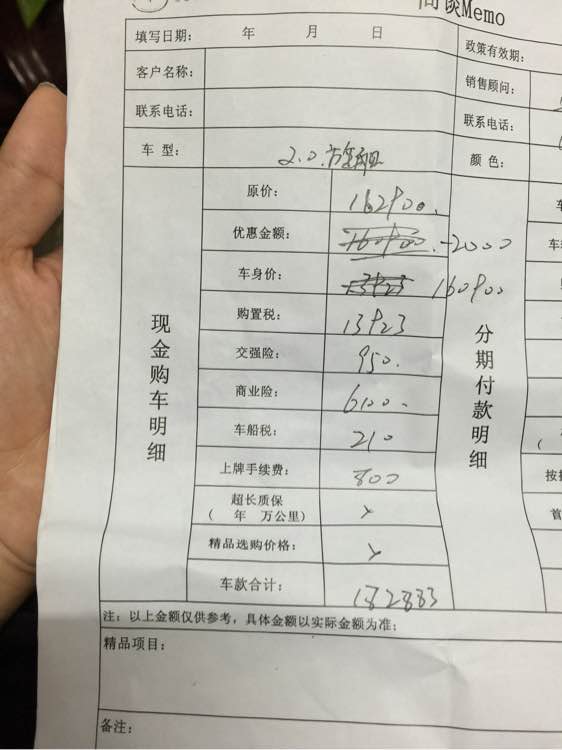 商谈Memo
填写日期： 年 月 日
政策有效期：
客户名称：
销售顾问：
联系电话：
联系电话：
车 型： 2.0.
颜 色：
现金购车明细
分期付款明细
原价： 162900.
优惠金额： 160900. -2000
车身价： 13923 160900
购置税： 13923
交强险： 950.
商业险： 6100.
车船税： 210
上牌手续费： 800
超长质保
（ 年 万公里） ×
精品选购价格： ×
车款合计： 182883
注：以上金额仅供参考，具体金额以实际金额为准；
精品项目：
备注：